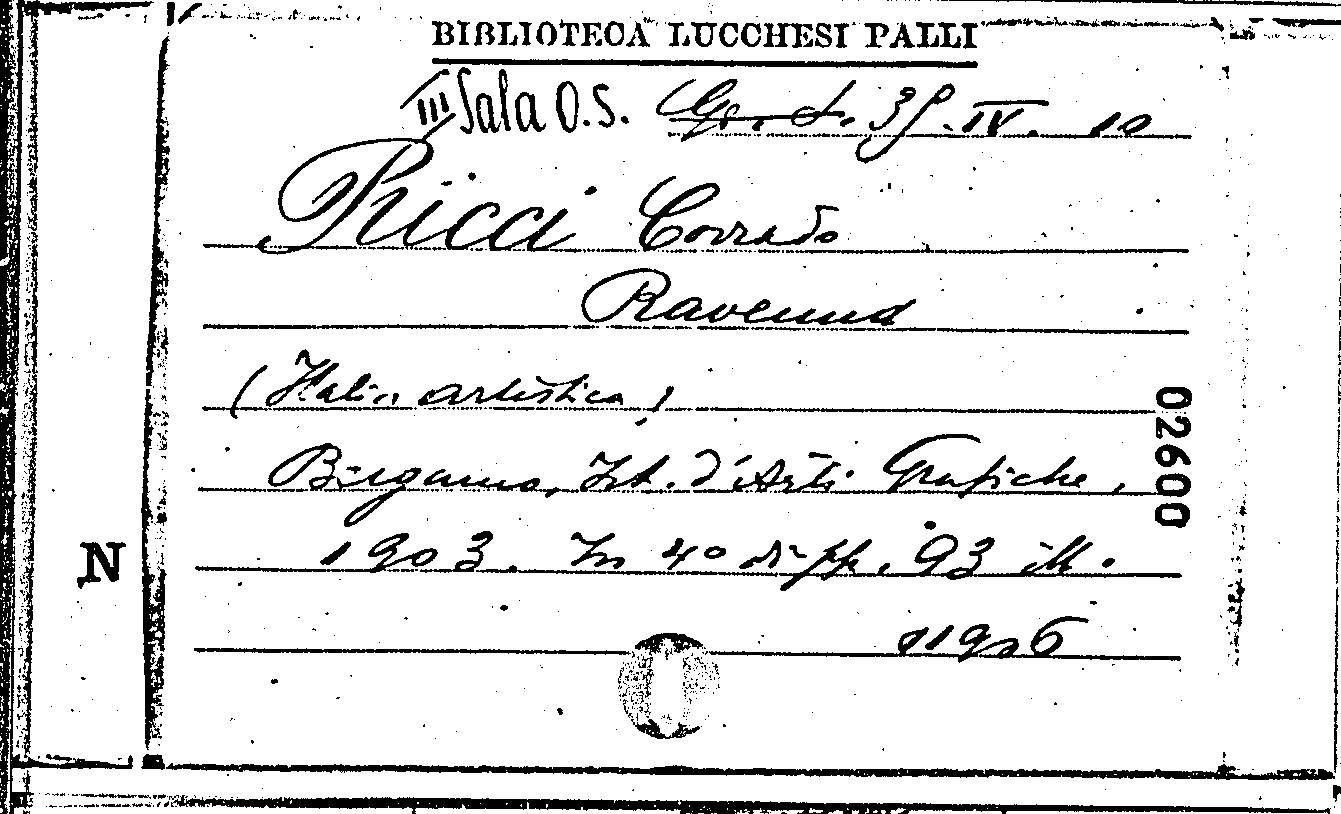 BIBLIOTECA LUCCHESI PALLI
III Sala O.S. 38. IV. 10
Ricci Corrado
Ravenna
(Italia artistica)
Bergamo, Ist. d'Arti Grafiche,
1903. In 4º di pp. 93 ill.
02600
N